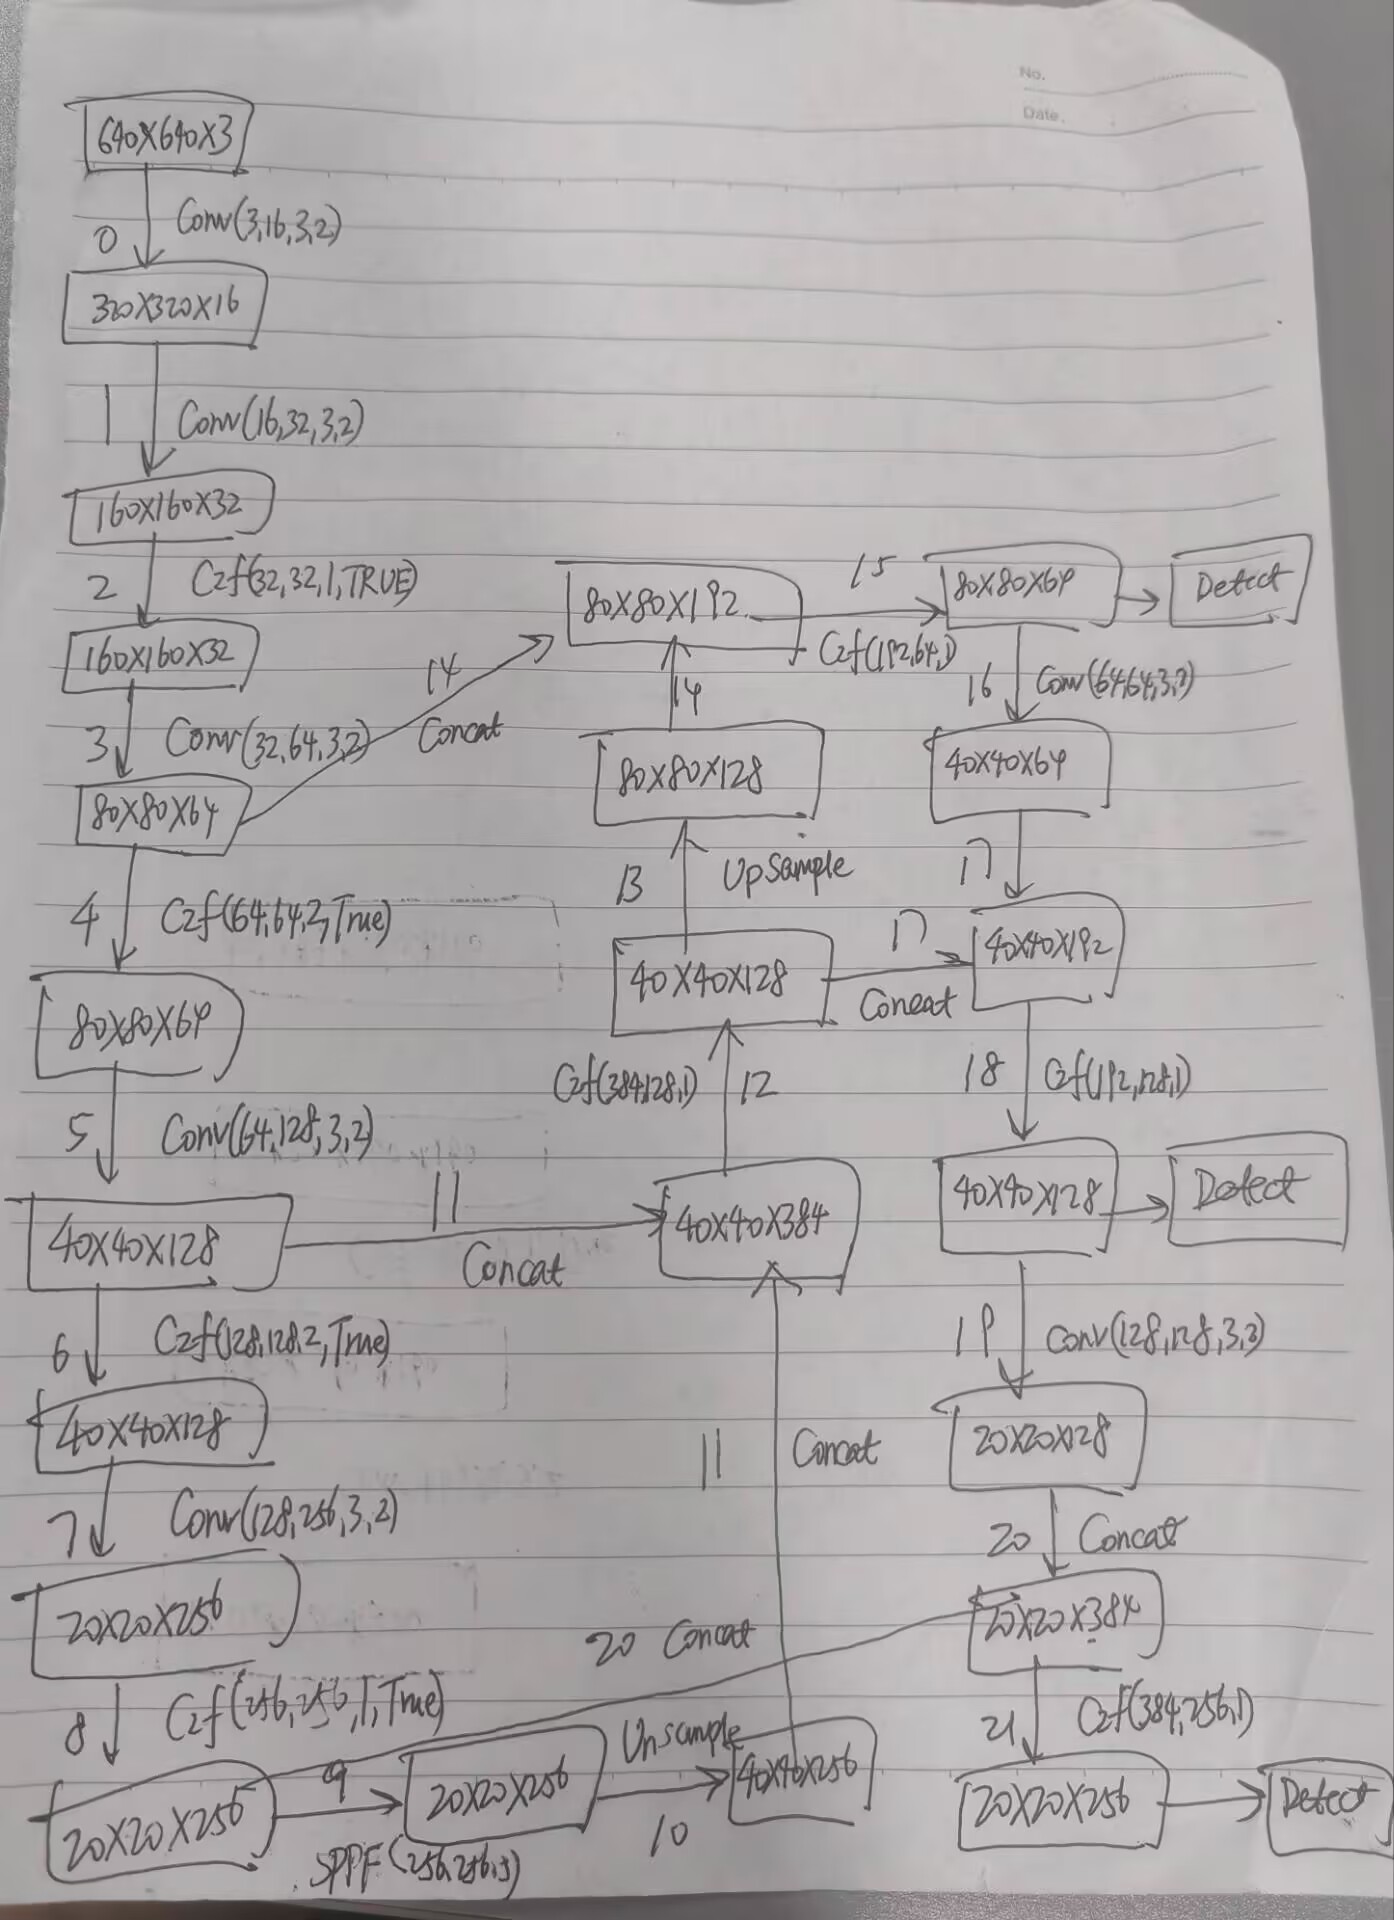 No.
Date.
640X640X3
0 Conv(3,16,3,2)
320X320X16
1 Conv(16,32,3,2)
160X160X32
2 C2f(32,32,1,TRUE)
160X160X32
3 Conv(32,64,3,2)
80X80X64
4 C2f(64,64,2,True)
80X80X64
5 Conv(64,128,3,2)
40X40X128
6 C2f(128,128,2,True)
40X40X128
7 Conv(128,256,3,2)
20X20X256
8 C2f(256,256,1,True)
20X20X256
9
SPPF(256,256,5)
20X20X256
Unsample
10
40X40X256
11 Concat
11
Concat
40X40X384
C2f(384,128,1) 12
40X40X128
13 UpSample
80X80X128
14
14
Concat
80X80X192
15
C2f(192,64,1)
80X80X64
Detect
16 Conv(64,64,3,2)
40X40X64
17
17
Concat
40X40X192
18 C2f(192,128,1)
40X40X128
Detect
19 Conv(128,128,3,2)
20X20X128
20 Concat
20 Concat
20X20X384
21 C2f(384,256,1)
20X20X256
Detect